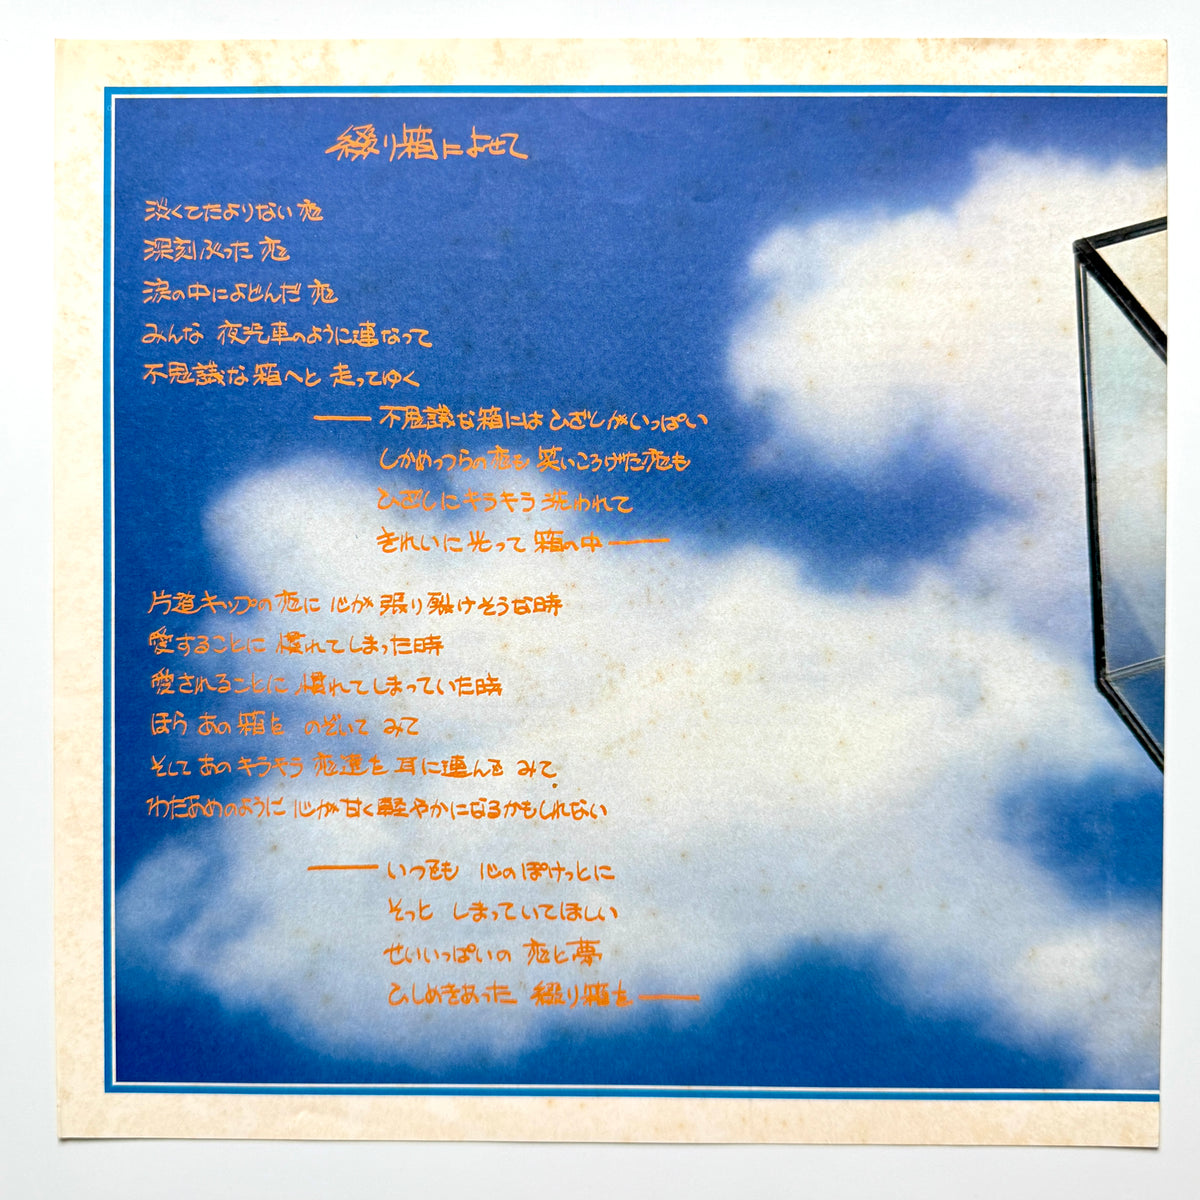 綴り箱によせて
淡くてたよりない恋
深刻ぶった恋
涙の中によどんだ恋
みんな 夜汽車のように連なって
不思議な箱へと 走ってゆく
―― 不思議な箱には ひざしがいっぱい
しかめっつらの恋も 笑いころげた恋も
ひざしにキラキラ 洗われて
きれいに光って 箱の中 ――
片道キップの恋に 心が 張り裂けそうな時
愛することに 慣れてしまった時
愛されることに 慣れてしまっていた時
ほら あの箱を のぞいて みて
そして あのキラキラ 恋達を 耳に運んで みて
わたあめのように 心が甘く軽やかになるかもしれない
―― いつでも 心のぽけっとに
そっと しまっていてほしい
せいいっぱいの 恋と夢
ひしめきあった 綴り箱を ――